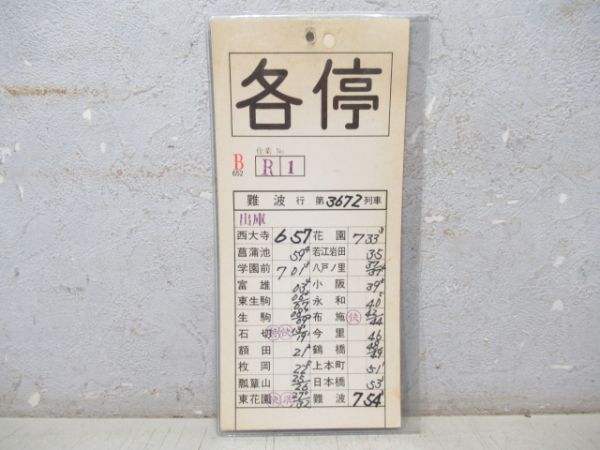 各停
仕業 No
B
652
R 1
難波行 第3672列車
出庫
西大寺 6 57
菖蒲池 59
学園前 7 01
富雄 03
東生駒
生駒
石切
額田 21
枚岡
瓢簞山
東花園
花園 7 33
若江岩田 35
八戸ノ里
小阪 39
永和 40
布施 快 43 44
今里 46
鶴橋 48 49
上本町 51
日本橋 53
難波 7 54